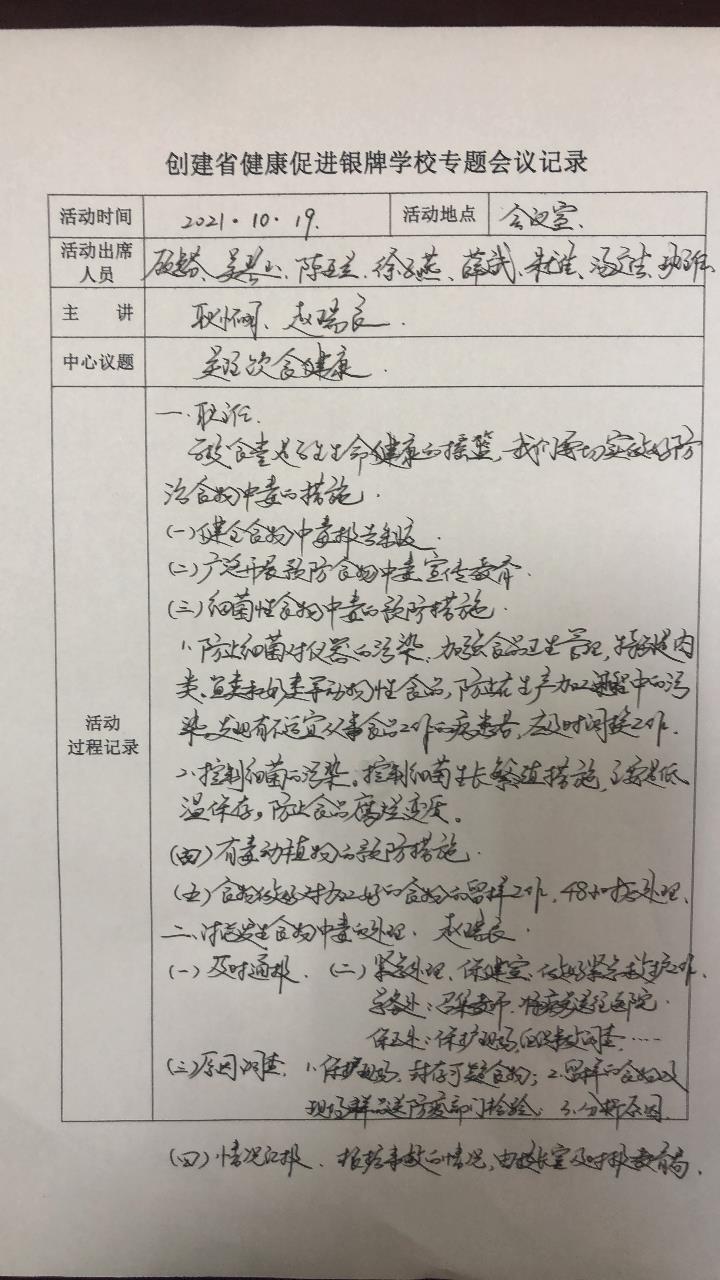 创建省健康促进银牌学校专题会议记录
活动时间 2021.10.19. 活动地点 会议室.
活动出席人员 陈玉兰、徐玉燕、薛武、
主 讲 赵瑞良.
中心议题 饮食健康.
活动过程记录
一.
食堂是 生命健康的摇篮,我们要切实做好防
治食物中毒的措施.
(一)健全食物中毒报告制度.
(二)广泛开展预防食物中毒宣传教育.
(三)细菌性食物中毒的预防措施.
1.防止细菌对仪器的污染.加强食品卫生管理,特别是肉
类、鱼类和奶类等动物性食品,防止在生产加工过程中的污
染。发现有不适宜从事食品工作的病患者,应及时调换工作.
2.控制细菌的污染。控制细菌生长繁殖措施,主要是低
温保存,防止食品腐烂变质。
(四)有毒动植物的预防措施.
(五)食物做好对加工好的食物的留样工作,48小时后处理.
二、 发生食物中毒的处理. 赵瑞良.
(一)及时通报. (二)紧急处理、保健室:做好紧急救护工作.
学务处:召集教师.将病员送往医院.
保卫处:保护现场, 调查.……
(三)原因调查. 1.保护现场,封存可疑食物;2.留样的食物及
现场样品送防疫部门检验;3.分析原因.
(四)情况汇报. 报告事故的情况,由校长室及时报教育局.